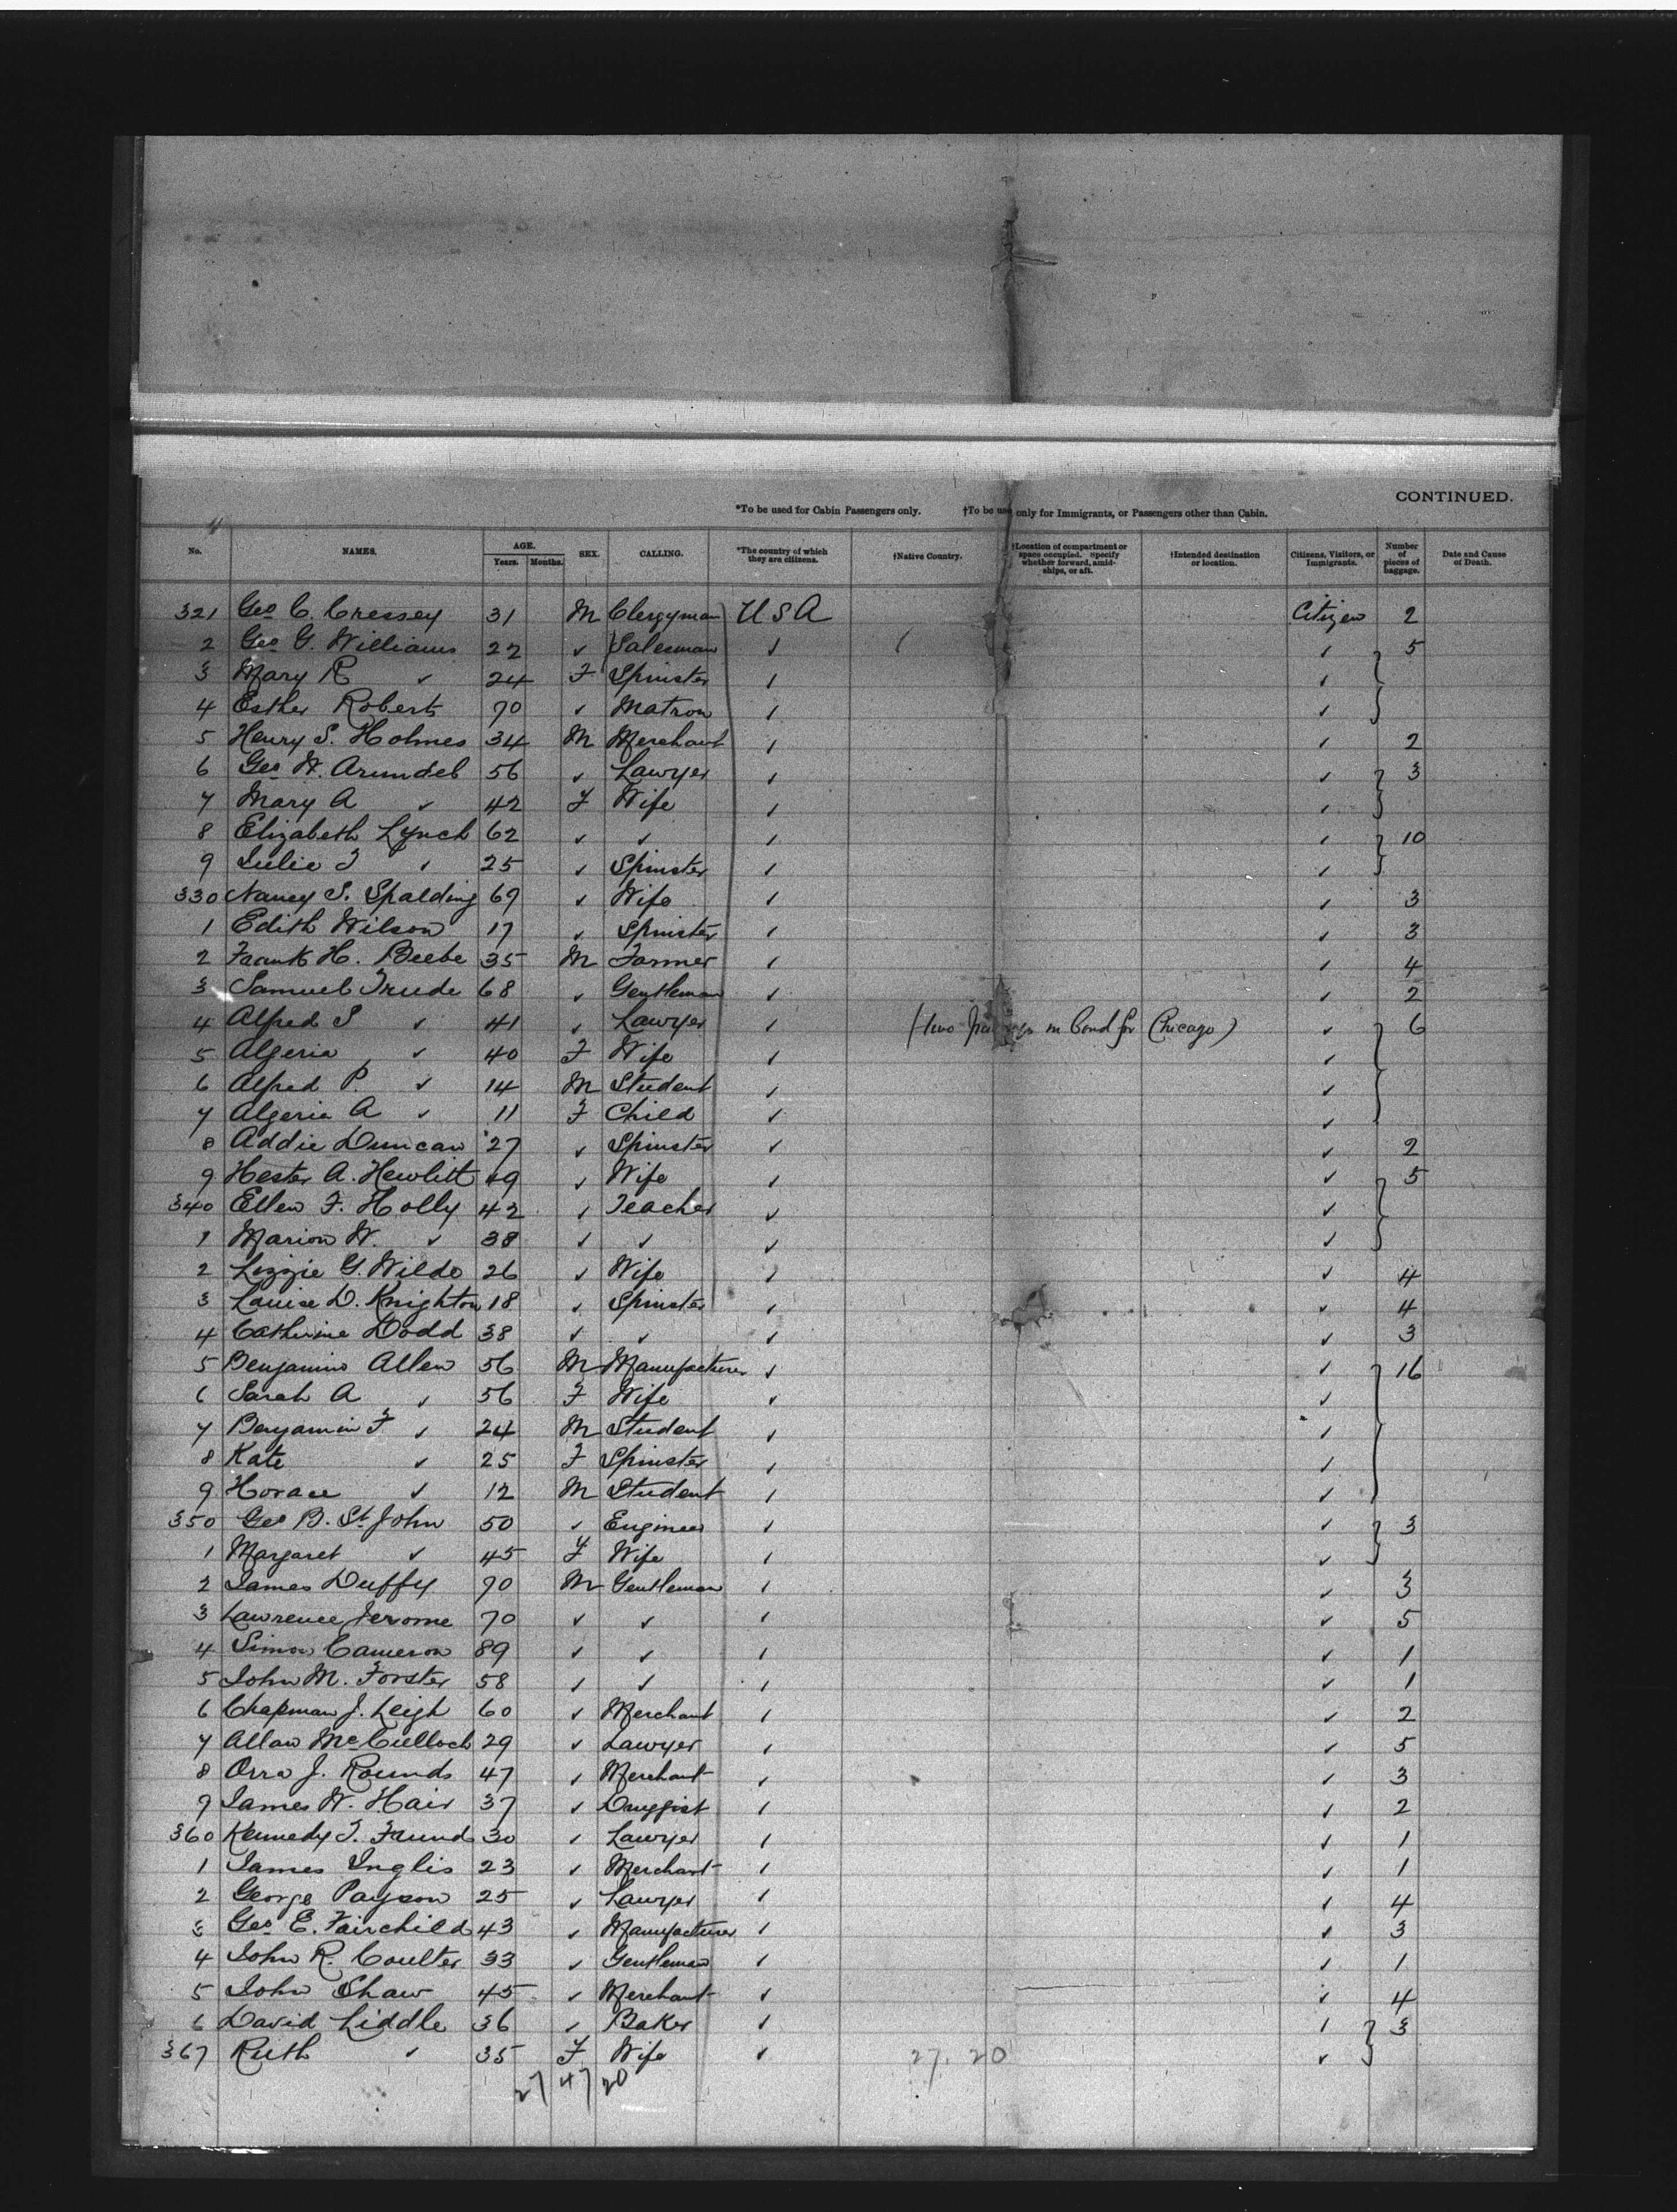 CONTINUED.
*To be used for Cabin Passengers only. †To be used only for Immigrants, or Passengers other than Cabin.
No. NAMES. AGE. Years. Months. SEX. CALLING. *The country of which they are citizens. †Native Country. †Location of compartment or space occupied. Specify whether forward, amidships, or aft. †Intended destination or location. Citizens, Visitors, or Immigrants. Number of pieces of baggage. Date and Cause of Death.
321 Geo C. Cressey 31 M Clergyman U S A Citizen 2
2 Geo G. Williams 22 ✓ Salesman ✓ ✓ 5
3 Mary R ✓ 24 F Spinster ✓ ✓
4 Esther Roberts 70 ✓ Matron ✓ ✓
5 Henry S. Holmes 34 M Merchant ✓ ✓ 2
6 Geo W. Arundel 56 ✓ Lawyer ✓ ✓ 3
7 Mary A ✓ 42 F Wife ✓ ✓
8 Elizabeth Lynch 62 ✓ ✓ ✓ ✓ 10
9 Julie ✓ 25 ✓ Spinster ✓ ✓
330 Nancy S. Spalding 69 ✓ Wife ✓ ✓ 3
1 Edith Wilson 17 ✓ Spinster ✓ ✓ 3
2 Frank H. Beebe 35 M Farmer ✓ ✓ 4
3 Samuel Trude 68 ✓ Gentleman ✓ ✓ 2
4 Alfred S ✓ 41 ✓ Lawyer ✓ (two in bond for Chicago) ✓ 6
5 Algeria ✓ 40 F Wife ✓ ✓
6 Alfred P. ✓ 14 M Student ✓ ✓
7 Algeria A ✓ 11 F Child ✓ ✓
8 Addie Duncan 27 ✓ Spinster ✓ ✓ 2
9 Hester A. Hewlitt 49 ✓ Wife ✓ ✓ 5
340 Ellen F. Holly 42 ✓ Teacher ✓ ✓
1 Marion W. ✓ 38 ✓ ✓ ✓ ✓
2 Lizzie G. Wilde 26 ✓ Wife ✓ ✓ 4
3 Louise D. Knighton 18 ✓ Spinster ✓ ✓ 4
4 Catherine Dodd 38 ✓ ✓ ✓ ✓ 3
5 Benjamin Allen 56 M Manufacturer ✓ ✓ 16
6 Sarah A ✓ 56 F Wife ✓ ✓
7 Benjamin F ✓ 24 M Student ✓ ✓
8 Kate ✓ 25 F Spinster ✓ ✓
9 Horace ✓ 12 M Student ✓ ✓
350 Geo B. St John 50 ✓ Engineer ✓ ✓ 3
1 Margaret ✓ 45 F Wife ✓ ✓
2 James Duffy 70 M Gentleman ✓ ✓ 3
3 Lawrence Jerome 70 ✓ ✓ ✓ ✓ 5
4 Simon Cameron 89 ✓ ✓ ✓ ✓ 1
5 John M. Forster 58 ✓ ✓ ✓ ✓ 1
6 Chapman J. Leigh 60 ✓ Merchant ✓ ✓ 2
7 Allan McCulloch 29 ✓ Lawyer ✓ ✓ 5
8 Orra J. Rounds 47 ✓ Merchant ✓ ✓ 3
9 James W. Hair 37 ✓ Druggist ✓ ✓ 2
360 Kennedy T. 30 ✓ Lawyer ✓ ✓ 1
1 James Inglis 23 ✓ Merchant ✓ ✓ 1
2 George Payson 25 ✓ Lawyer ✓ ✓ 4
3 Geo E. Fairchild 43 ✓ Manufacturer ✓ ✓ 3
4 John R. Coulter 33 ✓ Gentleman ✓ ✓ 1
5 John Shaw 45 ✓ Merchant ✓ ✓ 4
6 David Liddle 36 ✓ Baker ✓ ✓ 3
367 Ruth ✓ 35 F Wife ✓ 27. 20 ✓
27 47 20